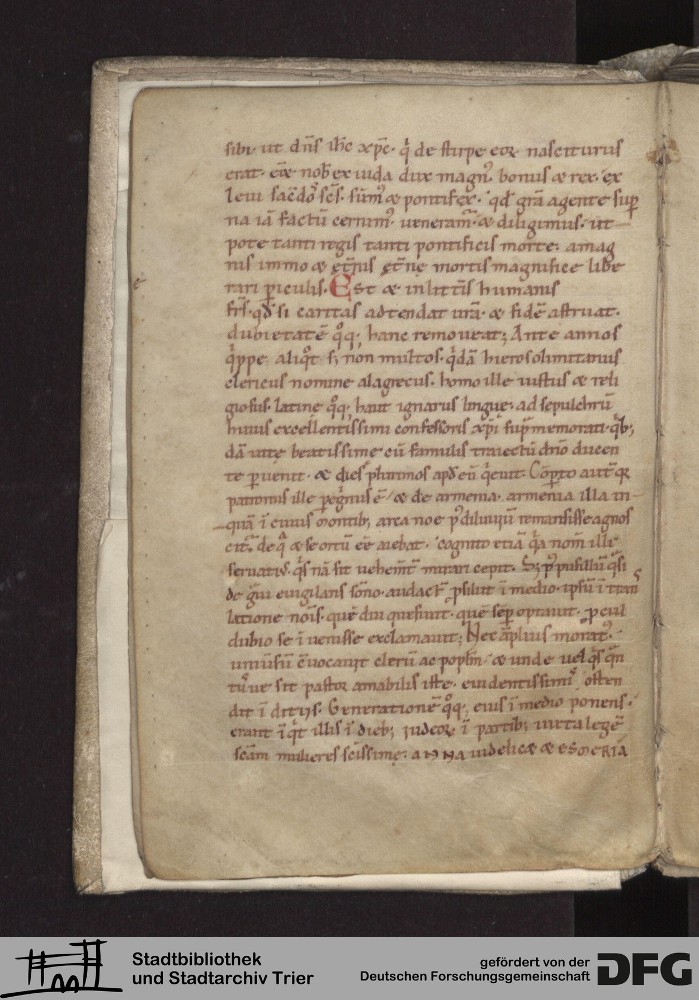 sibi· ut dn̄s ih̄c xp̄c· q̇ de stirpe eoꝝ nasciturus
erat· eoꝝ nob̄ ex iuda dux magn᷒· bonus & rex· ex
leui sac̄dos sc̄s· sum᷒ & pontifex· qd̄ gr̄a agente sup
na iā factū cernim᷒· ueneram᷒· & diligimus· ut
pote tanti regis tanti pontificis morte· a mag
nis immo & et̄nis et̄nę mortis magnifice libe
rari ꝑiculis· Est & in litt̄is humanis
fr̄s· qd̄ si caritas adtendat ur̄a· & fidē astruat·
dubietatē qͦq; hanc remoueat; Ante annos
q̇ppe aliqͦt s; non multos· q̇dā hierosolimitanus
clericus nomine alagrecus· homo ille iustus & reli
giosus· latine qͦq; haut ignarus linguę· ad sepulchrū
huius excellentissimi confessoris xp̄i sup̄memorati· q̇b;
dā uitę beatissimę cū famulis traiectū dn̄o ducen
te ꝑuenit· & dies plurimos apd̄ eū q̇euit· Cōꝑto autē qͣ
patronus ille ꝑegnus ē / & de armenia· armenia illa in-
quā ī cuius montib; arca noe p᷒ diluuiū remansisse agnos
cit᷒· de qͣ & se ortū eē aiebat· cognito etiā qͣ nom̄ illi
seruati᷒· q̇s nā sit uehem̄t mirari cepit· S; p᷒ pusillū q̇si
de gͣui euigilans sōno· audact̄ ꝓsiluit ī medio· ipsū ī tran
latione nōis· quē diu quesiuit· quē sēp optauit· ꝓcul
dubio se īuenisse exclamauit; Nec āplius morat᷒·
uniuersū cōuocauit clerū ac pop̄lm̄· & unde uel q̇s q̄n
tus ue sit pastor amabilis iste· euidentissim᷒ osten
dit ī dictis· Generationē qͦq; eius ī medio ponens·
erant īq̇t illis ī dieb; iudeoꝝ ī partib; iuxta legē
sc̄am mulieres sc̄issimę· ANNA uidelic& & ESMERIA
Stadtbibliothek
und Stadtarchiv Trier
gefördert von der
Deutschen Forschungsgemeinschaft
DFG